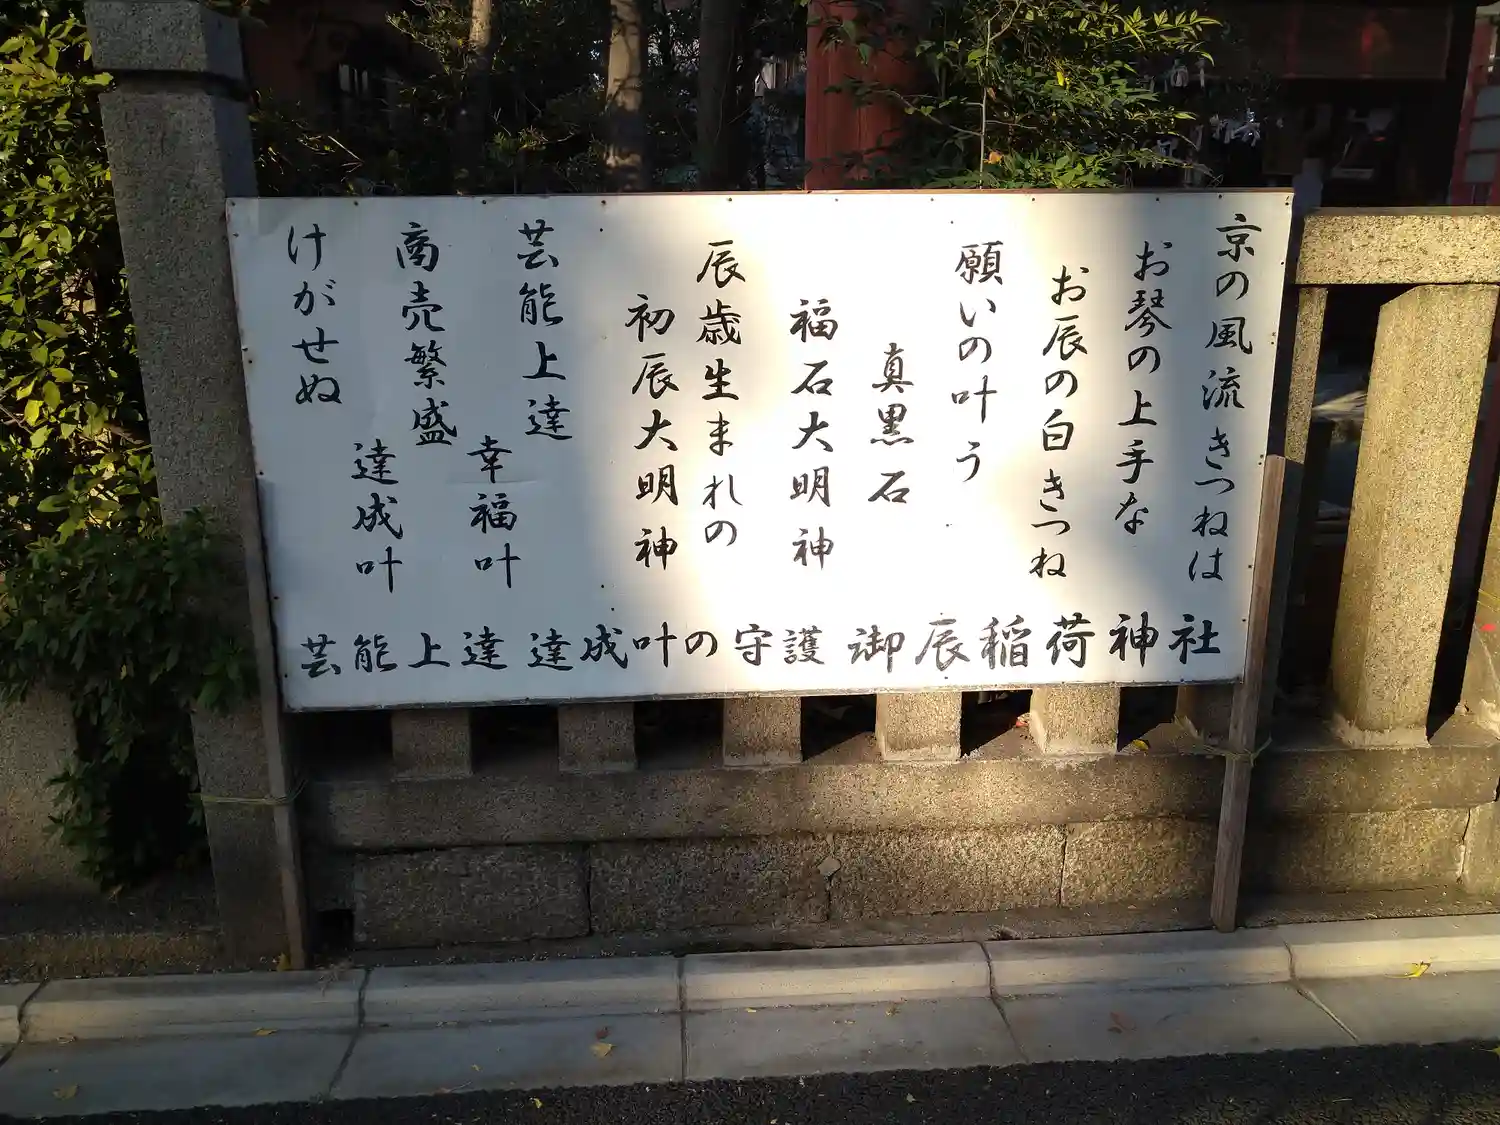 京の風流きつねは
お琴の上手な
お辰の白きつね
願いの叶う
真黒石
福石大明神
辰歳生まれの
初辰大明神
芸能上達
幸福叶
商売繁盛
達成叶
けがせぬ
芸能上達 達成叶の守護 御辰稲荷神社